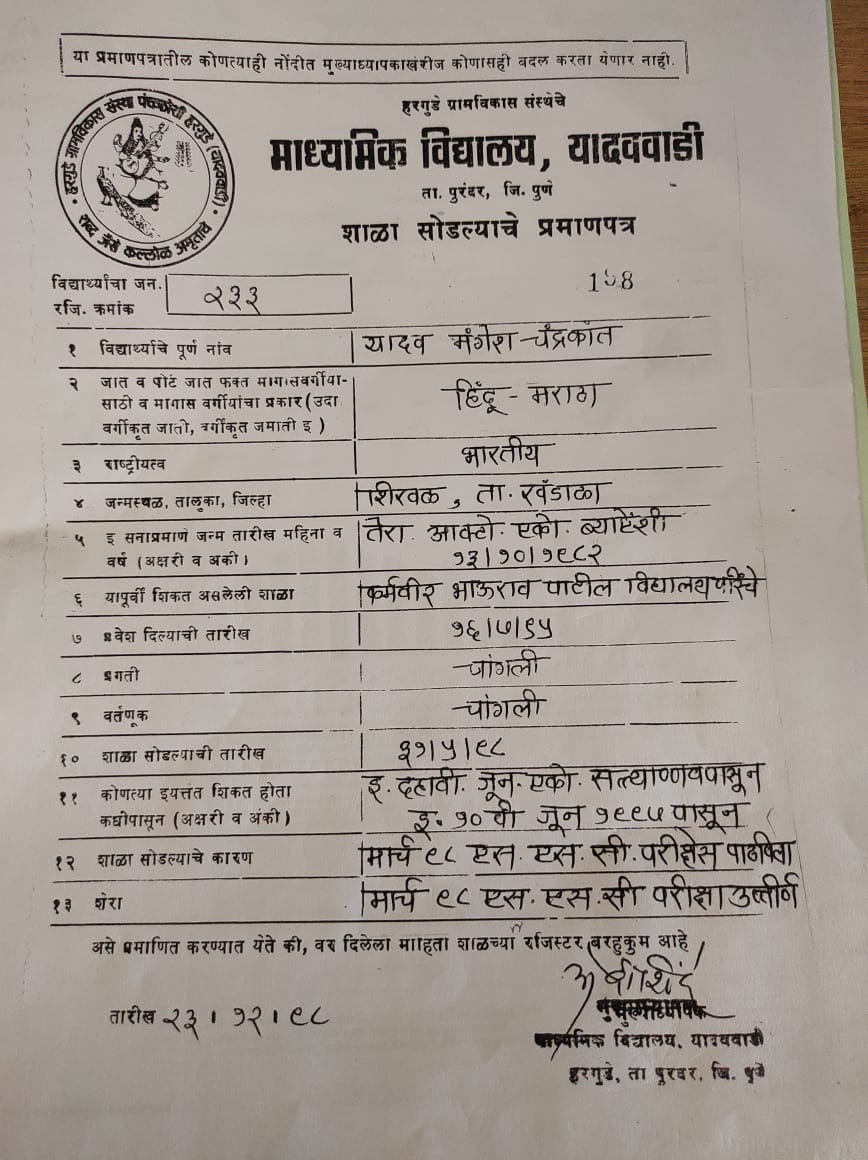 या प्रमाणपत्रातील कोणत्याही नोंदीत मुख्याध्यापकाखेरीज कोणासही बदल करता येणार नाही.
हरगुडे ग्रामविकास संस्थेचे
माध्यमिक विद्यालय, यादववाडी
ता. पुरंदर, जि. पुणे
शाळा सोडल्याचे प्रमाणपत्र
हरगुडे ग्रामविकास संस्था पंचक्रोशी हरगुडे (यादववाडी)
शब्द जैसे कल्लोळ अमृताचे
विद्यार्थ्यांचा जन.
रजि. क्रमांक २३३
१ विद्यार्थ्याचे पूर्ण नांव यादव मंगेश चंद्रकांत
२ जात व पोट जात फक्त मागासवर्गीया-
साठी व मागास वर्गीयांचा प्रकार (उदा हिंदू - मराठा
वर्गीकृत जाती, वर्गीकृत जमाती इ )
३ राष्ट्रीयत्व भारतीय
४ जन्मस्थळ, तालुका, जिल्हा शिरवळ, ता. खंडाळा
५ इ सनाप्रमाणे जन्म तारीख महिना व तेरा आक्टो. एको. ब्याऐंशी
वर्ष (अक्षरी व अंकी) १३|१०|१९८२
६ यापूर्वी शिकत असलेली शाळा कर्मवीर भाऊराव पाटील विद्यालय परिंचे
७ प्रवेश दिल्याची तारीख १६|७|९५
८ प्रगती चांगली
९ वर्तणूक चांगली
१० शाळा सोडल्याची तारीख ३१|५|९८
११ कोणत्या इयत्तेत शिकत होता इ. दहावी. जून. एको. सत्त्याण्णवपासून
कधीपासून (अक्षरी व अंकी) इ. १० वी जून १९९७ पासून
१२ शाळा सोडल्याचे कारण मार्च ९८ एस. एस. सी. परीक्षेस पाठविला
१३ शेरा मार्च ९८ एस. एस. सी परीक्षा उत्तीर्ण
असे प्रमाणित करण्यात येते की, वर दिलेली माहिती शाळेच्या रजिस्टर बरहुकुम आहे
तारीख २३।१२।९८
मुख्याध्यापक
माध्यमिक विद्यालय, यादववाडी
हरगुडे, ता पुरंदर, जि. पुणे